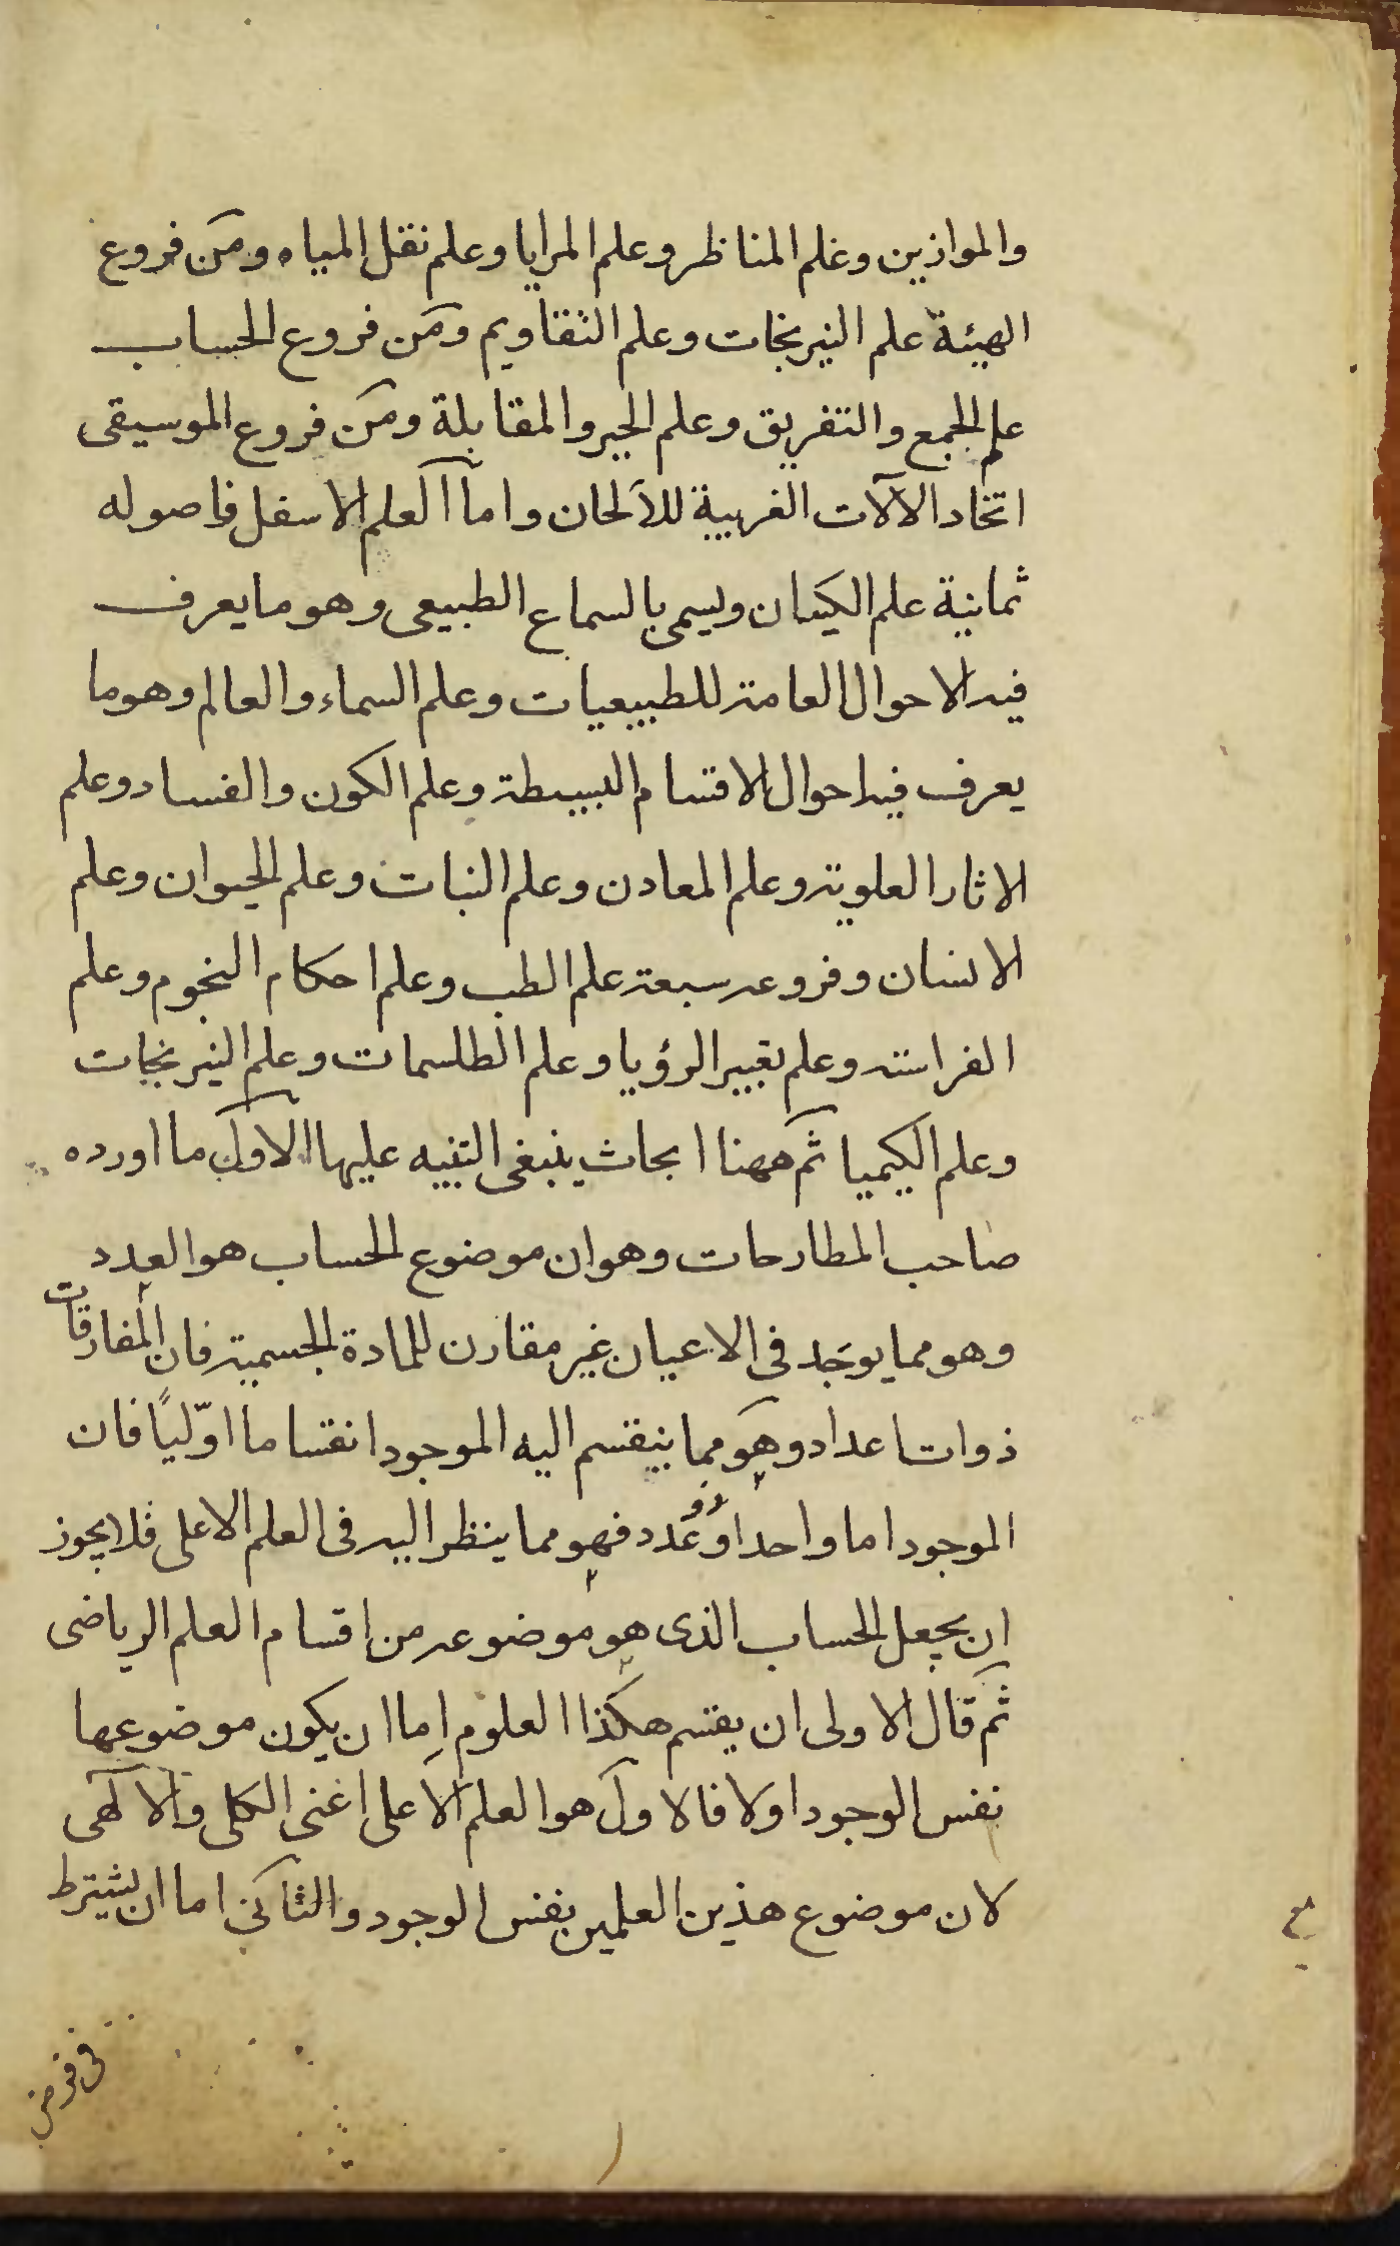 والموازين وعلم المناظر وعلم المرايا وعلم نقل المياه ومن فروع
الهيئة علم النيرنجات وعلم التقاويم ومن فروع الحساب
علم الجمع والتفريق وعلم الجبر والمقابلة ومن فروع الموسيقى
اتخاد الآلات الغريبة للألحان واما العلم الاسفل فاصوله
ثمانية علم الكيان ويسمى بالسماع الطبيعى وهو ما يعرف
فيه الاحوال العامة للطبيعيات وعلم السماء والعالم وهو ما
يعرف فيه احوال الاقسام البسيطة وعلم الكون والفساد وعلم
الاثار العلوية وعلم المعادن وعلم النبات وعلم الحيوان وعلم
الانسان وفروعه سبعة علم الطب وعلم احكام النجوم وعلم
الفراسة وعلم تعبير الرؤيا وعلم الطلسمات وعلم النيرنجات
وعلم الكيميا ثم ههنا ابحاث ينبغى التنبيه عليها الاول ما اورده
صاحب المطارحات وهو ان موضوع الحساب هو العدد
وهو مما يوجد فى الاعيان غير مقارن للمادة الجسمية فان المفارقات
ذوات اعداد وهو مما ينقسم اليه الموجود انقساما اوّليًا فان
الموجود اما واحد او ذو عدد فهو مما ينظر اليه فى العلم الاعلى فلا يجوز
ان يجعل الحساب الذى هو موضوعه من اقسام العلم الرياضى
ثم قال الاولى ان يقسم هكذا العلوم اما ان يكون موضوعها
نفس الوجود اولا فالاول هو العلم الاعلى اعنى الكلى والالهى
لان موضوع هذين العلمين نفس الوجود والثانى اما ان يشترط
فى فرض